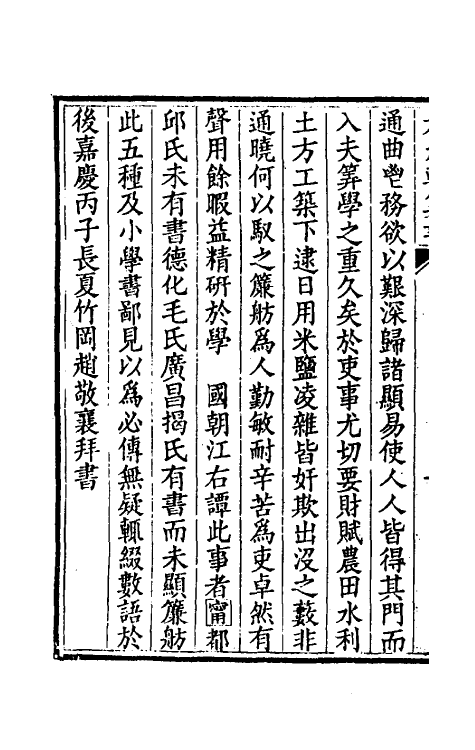 通曲鬯務欲以艱深歸諸顯易使人人皆得其門而
入夫筭學之重久矣於吏事尤切要財賦農田水利
土方工築下逮日用米鹽凌雜皆奸欺出沒之藪非
通曉何以馭之簾舫爲人勤敏耐辛苦爲吏卓然有
聲用餘暇益精研於學　國朝江右譚此事者甯都
邱氏未有書德化毛氏廣昌揭氏有書而未顯簾舫
此五種及小學書鄙見以爲必傳無疑輒綴數語於
後嘉慶丙子長夏竹岡趙敬襄拜書